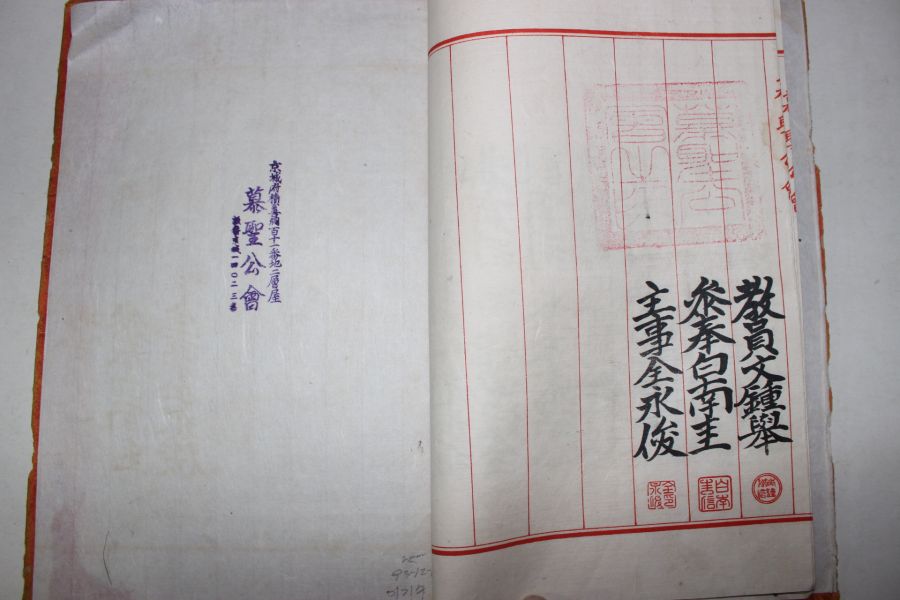 教員文鍾舉
叅奉白南圭
主事全永俊
京城府積善洞百十一番地二層屋
慕聖公會
振替京城一四〇二三番